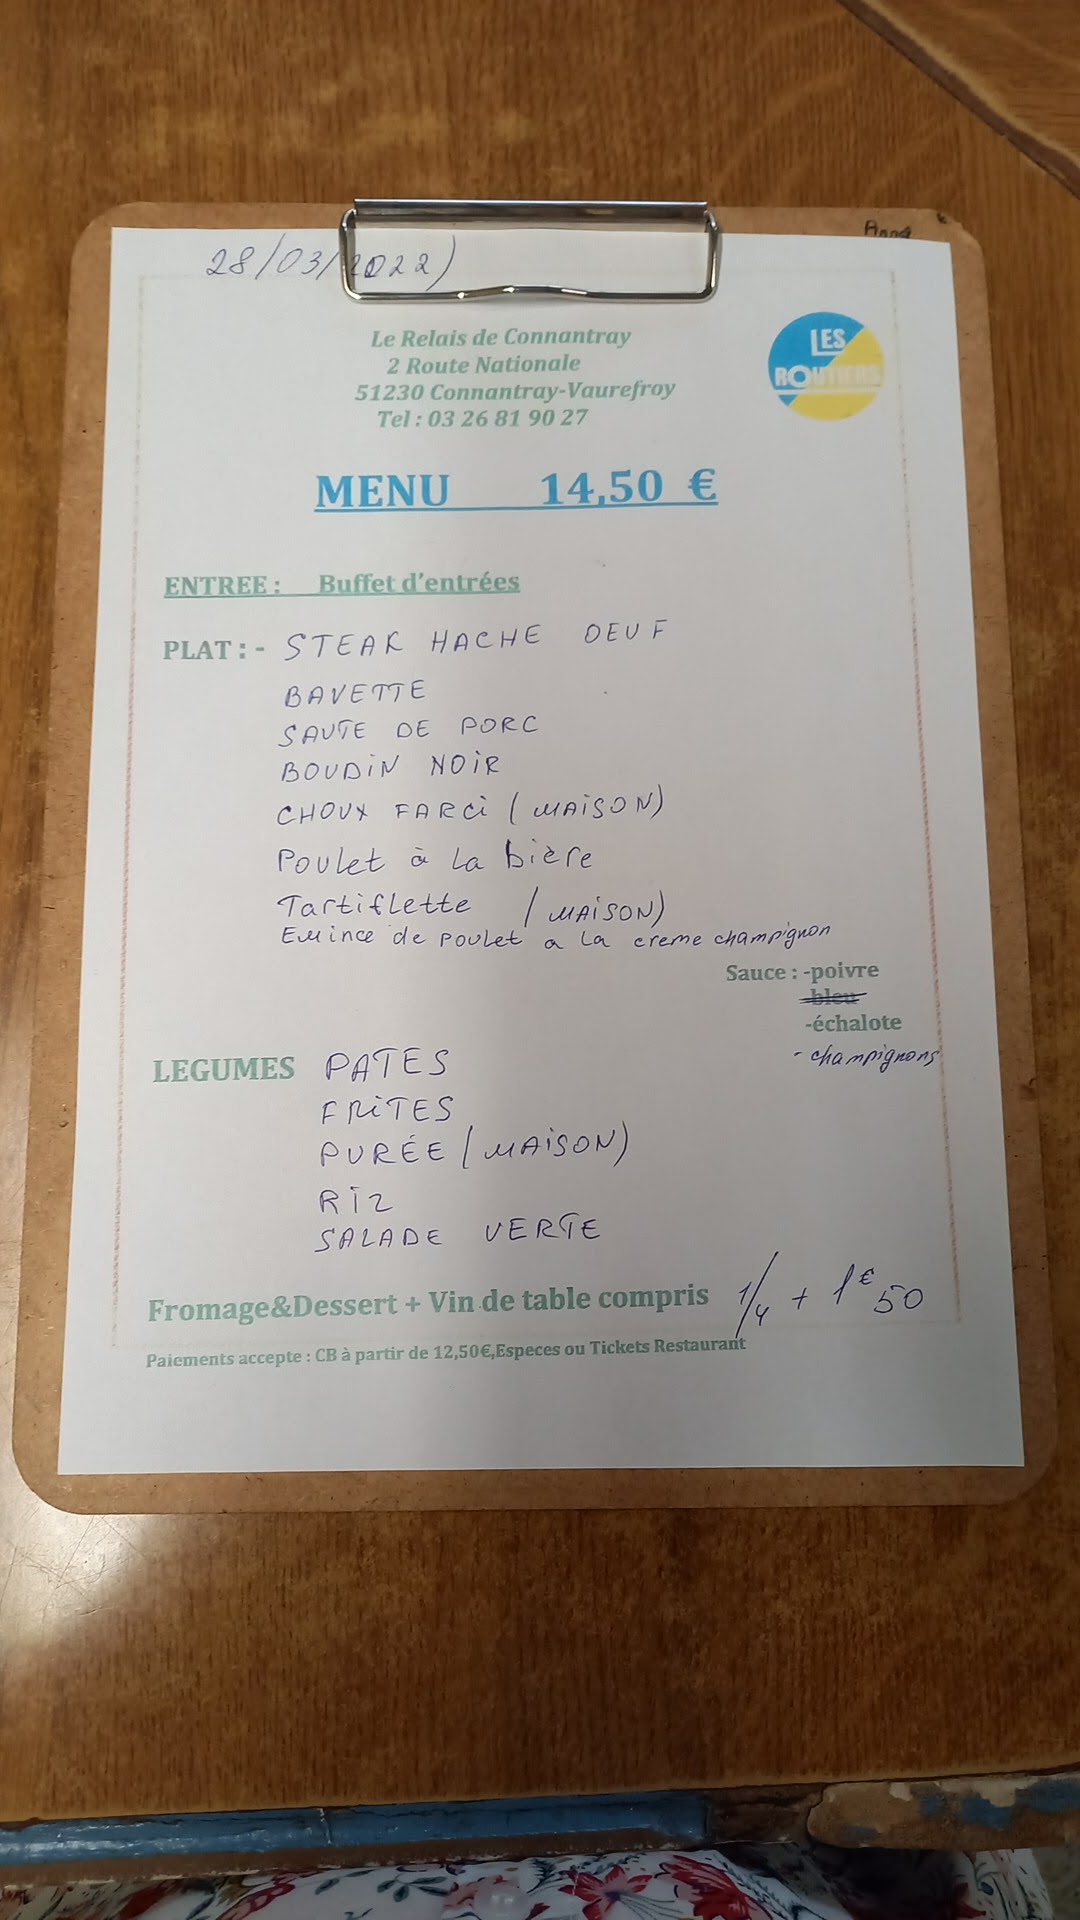 Anna
28/03/2022)
Le Relais de Connantray
2 Route Nationale
51230 Connantray-Vaurefroy
Tel : 03 26 81 90 27
LES
ROUTIERS
MENU 14,50 €
ENTREE : Buffet d'entrées
PLAT : - STEAK HACHE OEUF
BAVETTE
SAUTE DE PORC
BOUDIN NOIR
CHOUX FARCI (MAISON)
Poulet à la bière
Tartiflette (MAISON)
Emince de poulet a la creme champignon
Sauce : -poivre
-bleu
-échalote
- champignons
LEGUMES PATES
FRITES
PURÉE (MAISON)
RIZ
SALADE VERTE
Fromage&Dessert + Vin de table compris 1/4 + 1€50
Paiements accepte : CB à partir de 12,50€,Especes ou Tickets Restaurant